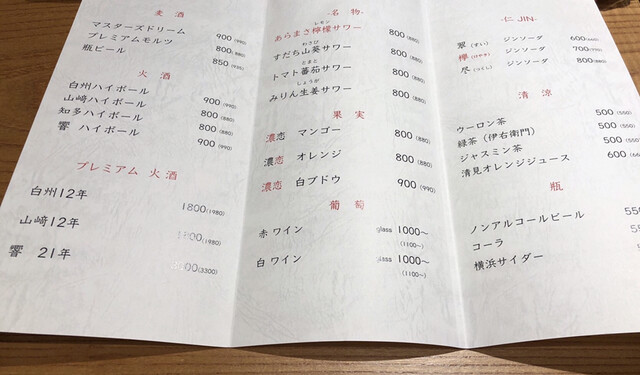 麦 酒
マスターズドリーム 900 (990)
プレミアムモルツ 800 (880)
瓶ビール 850 (935)
火 酒
白州ハイボール 900 (990)
山﨑ハイボール 800 (880)
知多ハイボール 800 (880)
響 ハイボール 900 (990)
プレミアム 火 酒
白州12年 1800 (1980)
山﨑12年 1800 (1980)
響 21年 00 (3300)
-名 物-
レモン
あらまさ檸檬サワー 800 (880)
わさび
すだち山葵サワー 800 (880)
とまと
トマト蕃茄サワー 800 (880)
しょうが
みりん生姜サワー 800 (880)
果 実
濃恋 マンゴー 800 (880)
濃恋 オレンジ 800 (880)
濃恋 白ブドウ 900 (990)
葡 萄
赤 ワイン glass 1000〜
(1100〜)
白 ワイン glass 1000〜
(1100〜)
-仁 JIN-
翠 (すい) ジンソーダ 600 (660)
欅 (けやき) ジンソーダ 700 (770)
尽 (つくし) ジンソーダ 800
清 涼
ウーロン茶 500 (550)
緑茶 (伊右衛門) 500 (550)
ジャスミン茶 500 (550)
清見オレンジジュース 600
瓶
ノンアルコールビール
コーラ
横浜サイダー